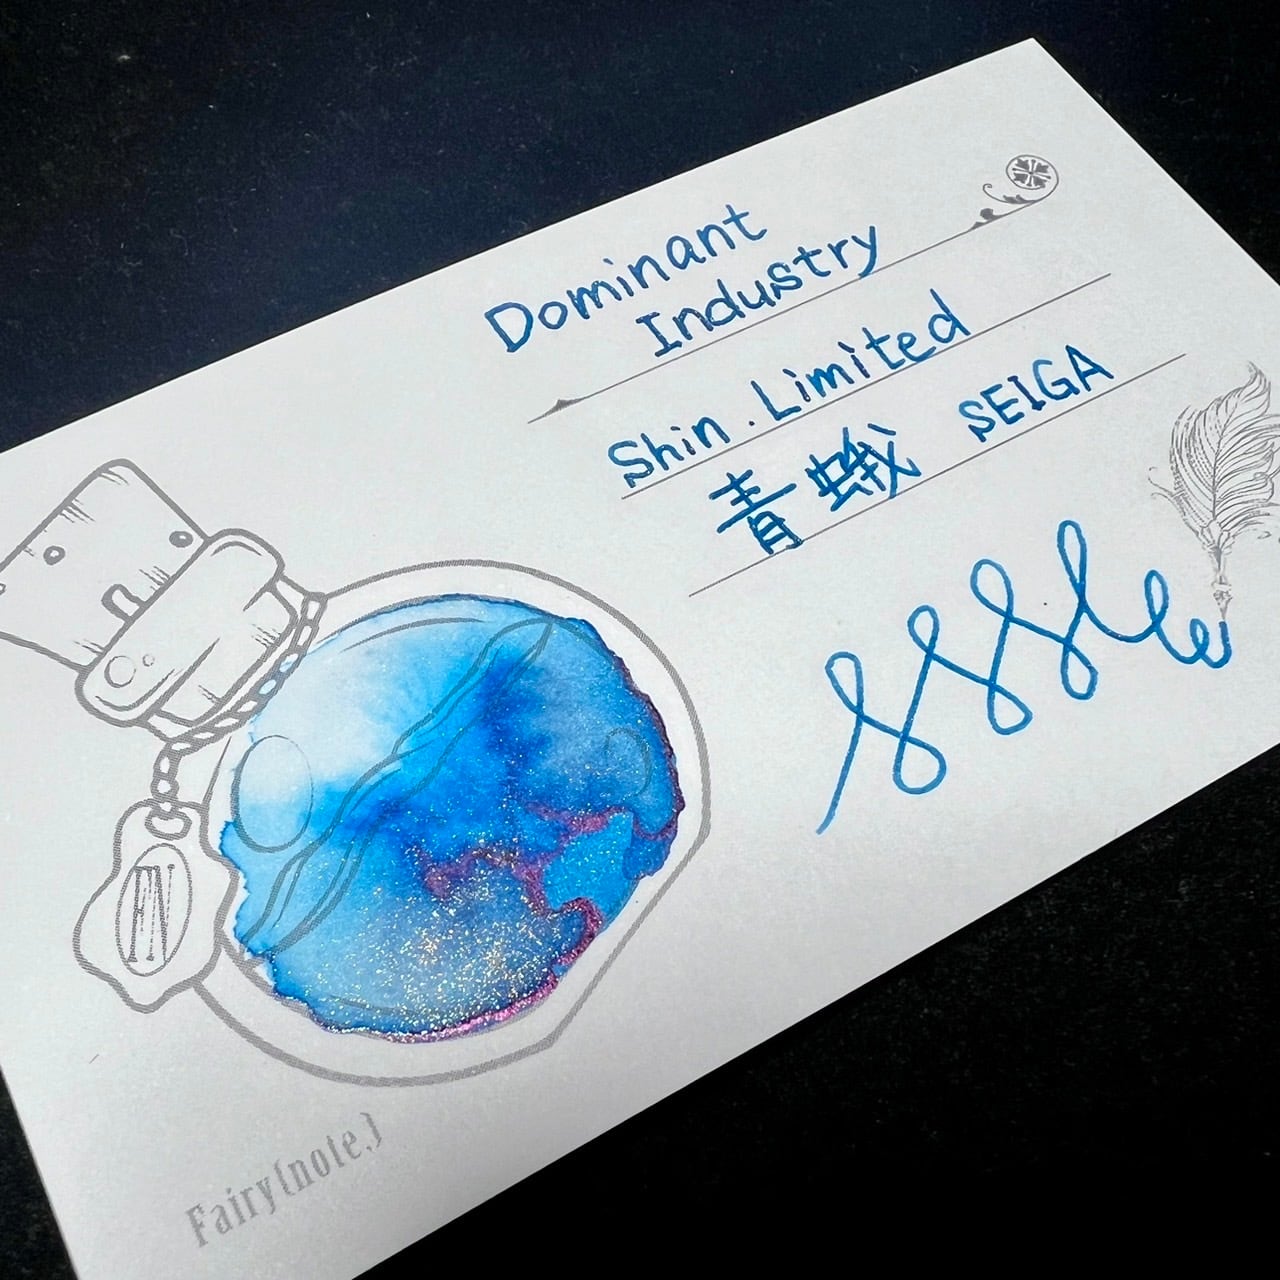 Dominant
Industry
Shin. Limited
青蛾 SEIGA
FN
Fairy(note,)